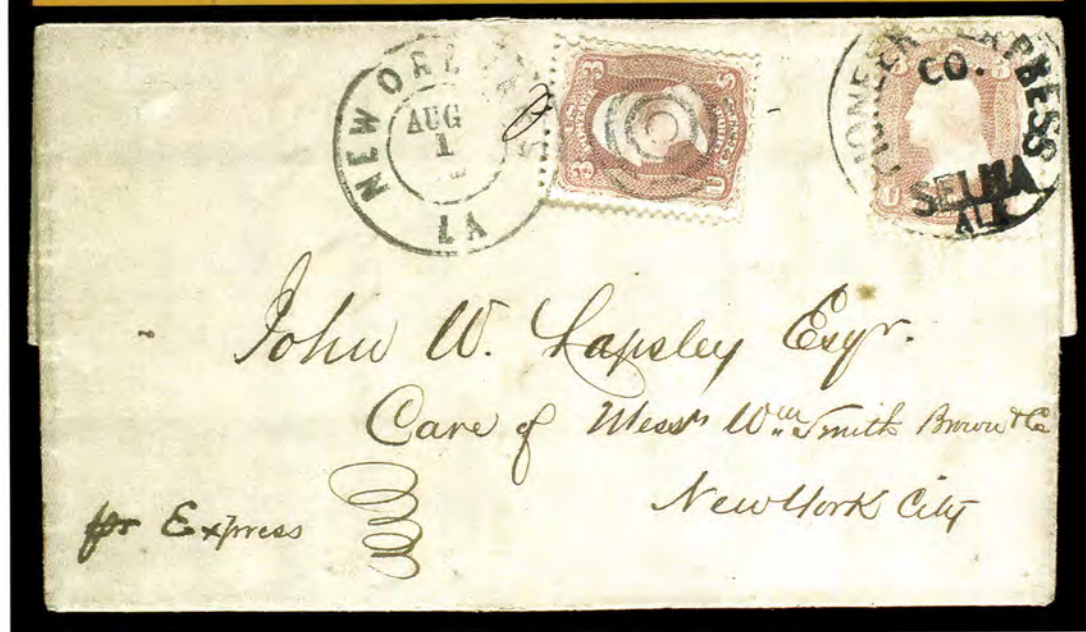 NEW ORLEANS
AUG
1
LA
PIONEER EXPRESS
CO.
SELMA
ALA
John W. Lapsley Esqr.
Care of Messrs Wm Smith Brown & Co
New York City
pr Express